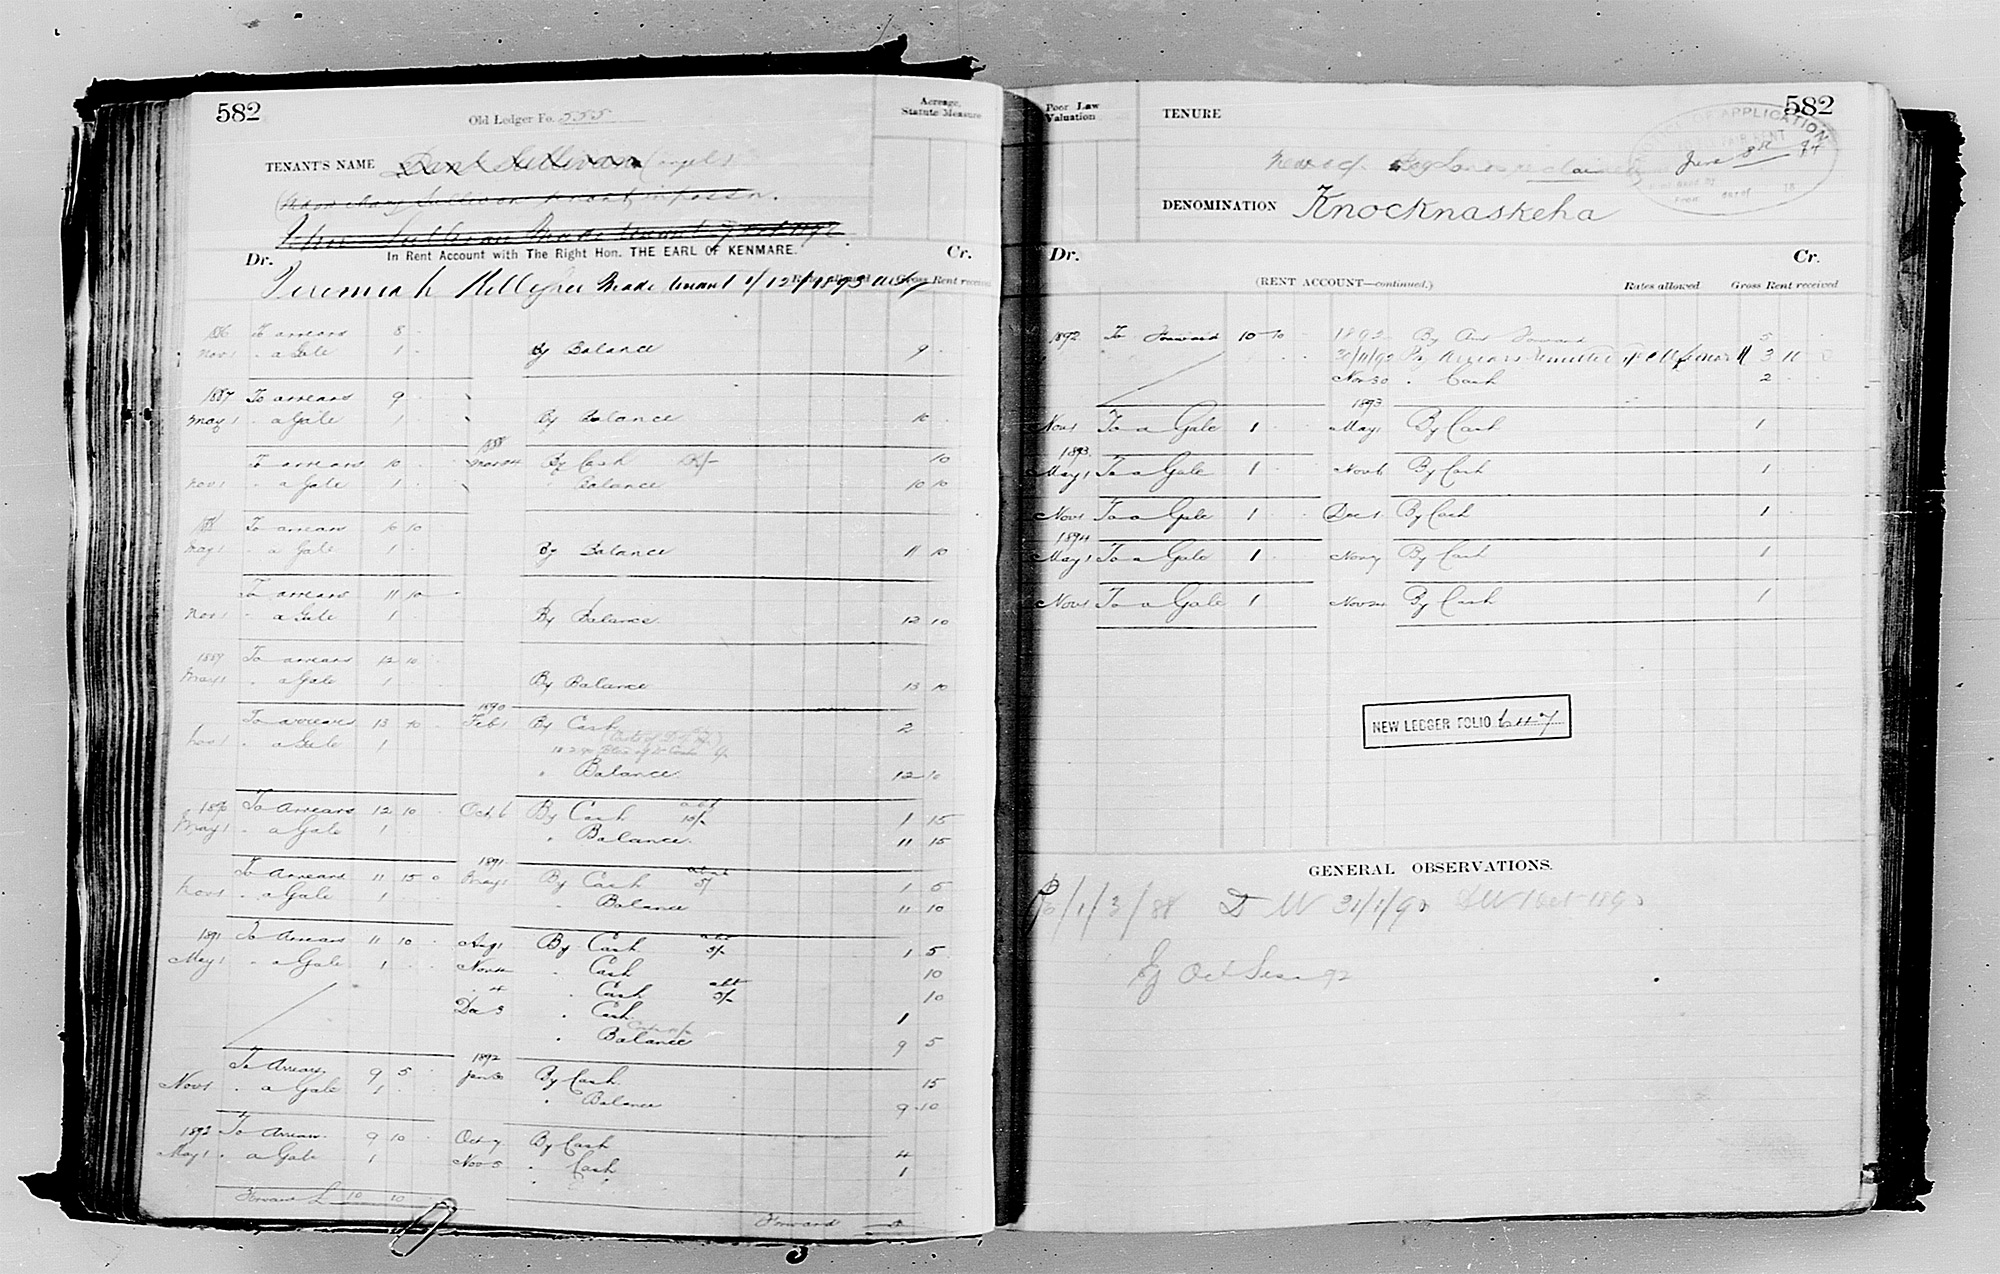 582
Old Ledger Fo. 555
Acreage, Statute Measure
TENANT'S NAME Sullivan (angels)
Mary Sullivan tenant in possn.
Sullivan Made tenant
Dr. In Rent Account with The Right Hon. THE EARL OF KENMARE. Cr.
Jeremiah Made tenant 1/12/1893 Gross Rent received
1886 To arrears 8
Nov 1 " a Gale 1 By Balance 9
1887 To arrears 9
May 1 " a Gale 1 By Balance 10
1888
To arrears 10 Mar 24 By Cash 10
Nov 1 " a Gale 1 " Balance 10 10
1888 To arrears 10 10
May 1 " a Gale 1 By Balance 11 10
To arrears 11 10
Nov 1 " a Gale 1 By Balance 12 10
1889 To arrears 12 10
May 1 " a Gale 1 By Balance 13 10
1890
To arrears 13 10 Feb 1 By Cash 2
Nov 1 " a Gale 1
" Balance 12 10
1890 To Arrears 12 10 Oct 6 By Cash abt 10/- 1 15
May 1 " a Gale 1 " Balance 11 15
1891
To Arrears 11 15 0 May 1 By Cash 5/ 1 5
Nov 1 " a Gale 1 " Balance 11 10
1891 To Arrears 11 10 Aug 1 By Cash abt 5/- 1 5
May 1 " a Gale 1 Nov " Cash 10
" Cash abt 5/- 10
Dec 3 " Cash 1
" Balance 9 5
1892
To Arrears 9 5 Jan By Cash 15
Nov 1 " a Gale 1 " Balance 9 10
1892 To Arrears 9 10 Oct 7 By Cash 4
May 1 " a Gale 1 Nov 5 " Cash 1
Forward £ 10 10 Forward 5
582
Poor Law Valuation
TENURE
OF APPLICATION
FAIR RENT
June 8th 94
DENOMINATION Knocknaskeha
Dr. Cr.
(RENT ACCOUNT—continued.) Rates allowed Gross Rent received
1892 To Forward 10 10 1892 By Amt Forward 5
30/11/92 By Arrears remitted 3 11
Nov 30 " Cash 2
1893
Nov 1 To a Gale 1 May 1 By Cash 1
1893
May 1 To a Gale 1 Nov 6 By Cash 1
Nov 1 To a Gale 1 Dec 1 By Cash 1
1894
May 1 To a Gale 1 Nov 7 By Cash 1
Nov 1 To a Gale 1 Nov 24 By Cash 1
NEW LEDGER FOLIO 647
GENERAL OBSERVATIONS.
1/3/88 D W 31/1/90
Ej Oct Sess 92